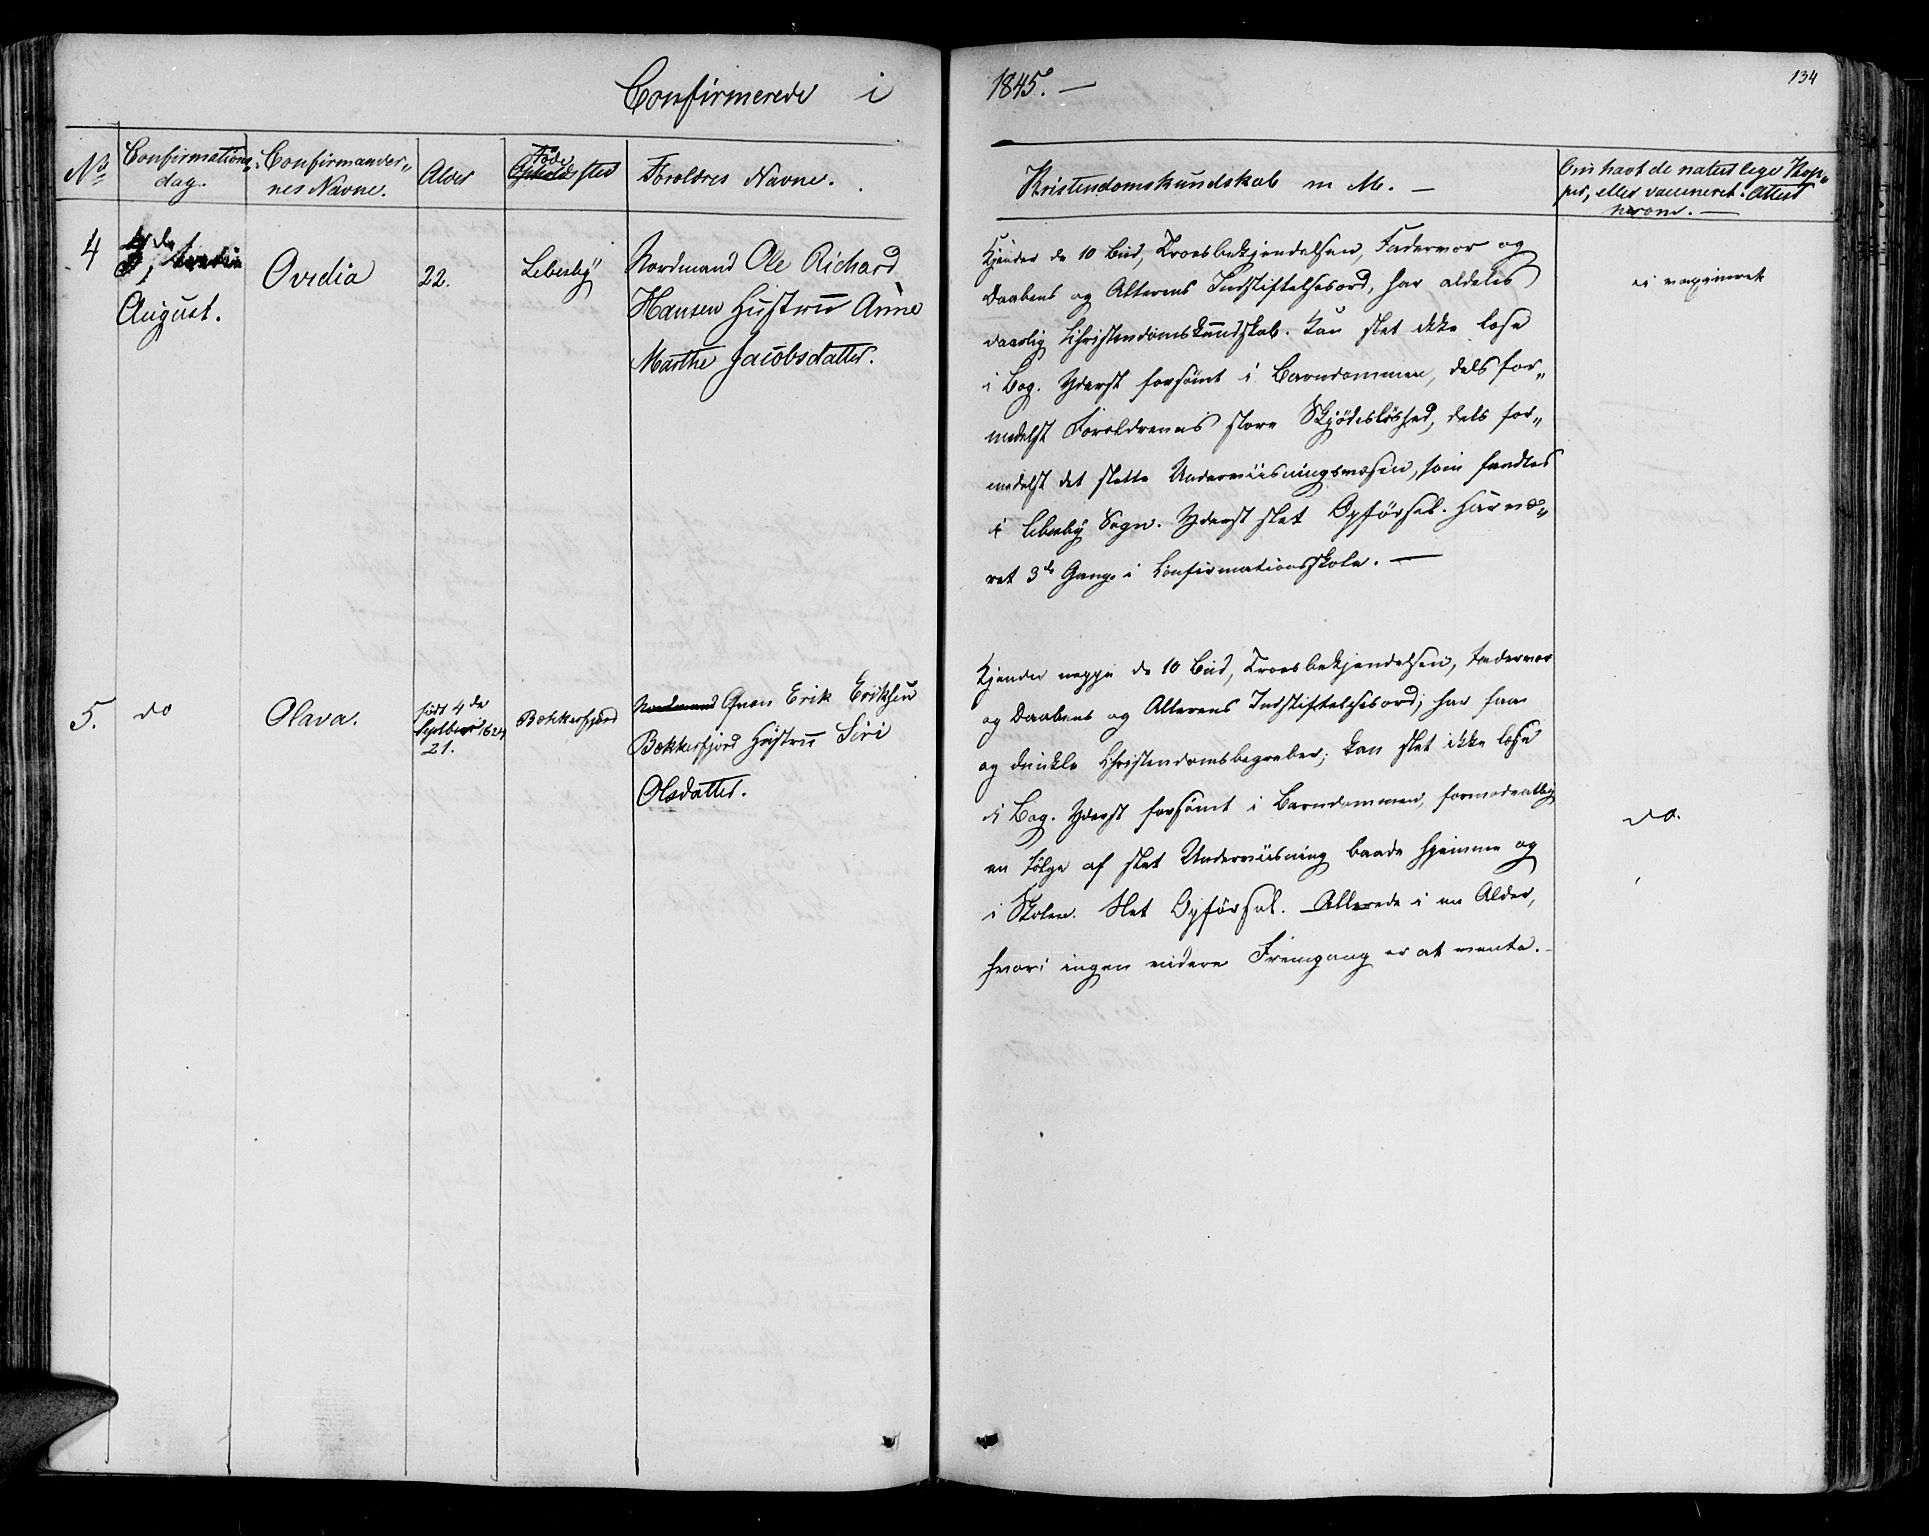 Confirmerede i 1845. —
134
No
Confirmations-
dag.
Confirmander-
nes Navne.
Alder
Føde
Opholdssted
Foreldres Navne.
Kristendomskundskab m M. —
Om havt de naturlige Kop-
per, eller vaccineret. Attest
herom. —
4
3die
August.
Ovidia
22.
Lebesby
Nordmand Ole Richard
Hansen Hustru Anne
Marthe Jacobsdatter.
Kjender de 10 Bud, Troesbekjendelsen, Fadervor og
Daabens og Alterens Indstiftelsesord, har aldeles
daarlig Christendomskundskab. Kan slet ikke læse
i Bog. Yderst forsømt i Barndommen, dels for-
medelst Foreldrenes store Skjødesløshed, dels for-
medelst det slette Underviisningsvæsen, som fandtes
i Lebesby Sogn. Yderst slet Opførsel. Har væ-
ret 3de Gange i Confirmationsskole. —
ei vaxineret
5.
do
Olava.
født 4de
Septbr 1624
21.
Bekkerfjord
Nordmand Qvæn Erik Eriksen
Bekkerfjord Hustru Siri
Olsdatter.
Kjender neppe de 10 Bud, Troesbekjendelsen, Fadervor
og Daabens og Alterens Indstiftelsesord; har faa
og dunkle Christendomsbegreber; kan slet ikke læse
i Bog. Yderst forsømt i Barndommen, formodentlig
en Følge af slet Underviisning baade hjemme og
i Skolen. Slet Opførsel. Allerede i en Alder,
hvori ingen videre Fremgang er at vente. -
do.